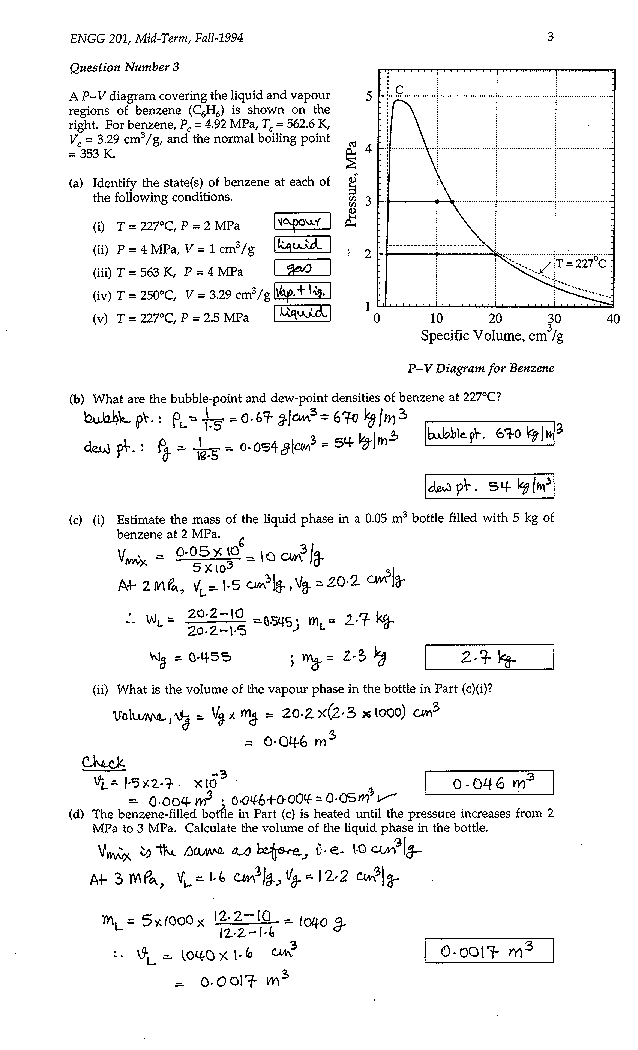 ENGG 201, Mid-Term, Fall-1994
3
Question Number 3
A P–V diagram covering the liquid and vapour
regions of benzene (C₆H₆) is shown on the
right. For benzene, P_c = 4.92 MPa, T_c = 562.6 K,
V_c = 3.29 cm³/g, and the normal boiling point
= 353 K.
(a) Identify the state(s) of benzene at each of
the following conditions.
(i) T = 227°C, P = 2 MPa vapour
(ii) P = 4 MPa, V = 1 cm³/g liquid
(iii) T = 563 K, P = 4 MPa gas
(iv) T = 250°C, V = 3.29 cm³/g Vap. + liq.
(v) T = 227°C, P = 2.5 MPa liquid
C
5
4
3
2
1
Pressure, MPa
T = 227°C
0 10 20 30 40
Specific Volume, cm³/g
P–V Diagram for Benzene
(b) What are the bubble-point and dew-point densities of benzene at 227°C?
bubble pt. : ρL = 1/1.5 = 0.67 g/cm³ = 670 kg/m³
bubble pt. 670 kg/m³
dew pt. : ρg = 1/18.5 = 0.054 g/cm³ = 54 kg/m³
dew pt. 54 kg/m³
(c) (i) Estimate the mass of the liquid phase in a 0.05 m³ bottle filled with 5 kg of
benzene at 2 MPa.
Vmix = 0.05 x 10⁶ / 5 x 10³ = 10 cm³/g
At 2 MPa, VL = 1.5 cm³/g, Vg = 20.2 cm³/g
∴ WL = 20.2-10 / 20.2-1.5 = 0.545; mL = 2.7 kg
Wg = 0.455 ; mg = 2.3 kg
2.7 kg
(ii) What is the volume of the vapour phase in the bottle in Part (c)(i)?
Volume, vg = Vg x mg = 20.2 x (2.3 x 1000) cm³
= 0.046 m³
Check
vL = 1.5 x 2.7 x 10⁻³
0.046 m³
= 0.004 m³ ; 0.046+0.004 = 0.05 m³ ✓
(d) The benzene-filled bottle in Part (c) is heated until the pressure increases from 2
MPa to 3 MPa. Calculate the volume of the liquid phase in the bottle.
Vmix is the same as before, i.e. 10 cm³/g
At 3 MPa, VL = 1.6 cm³/g, Vg = 12.2 cm³/g
mL = 5 x 1000 x 12.2-10 / 12.2-1.6 = 1040 g
∴ vL = 1040 x 1.6 cm³
0.0017 m³
= 0.0017 m³